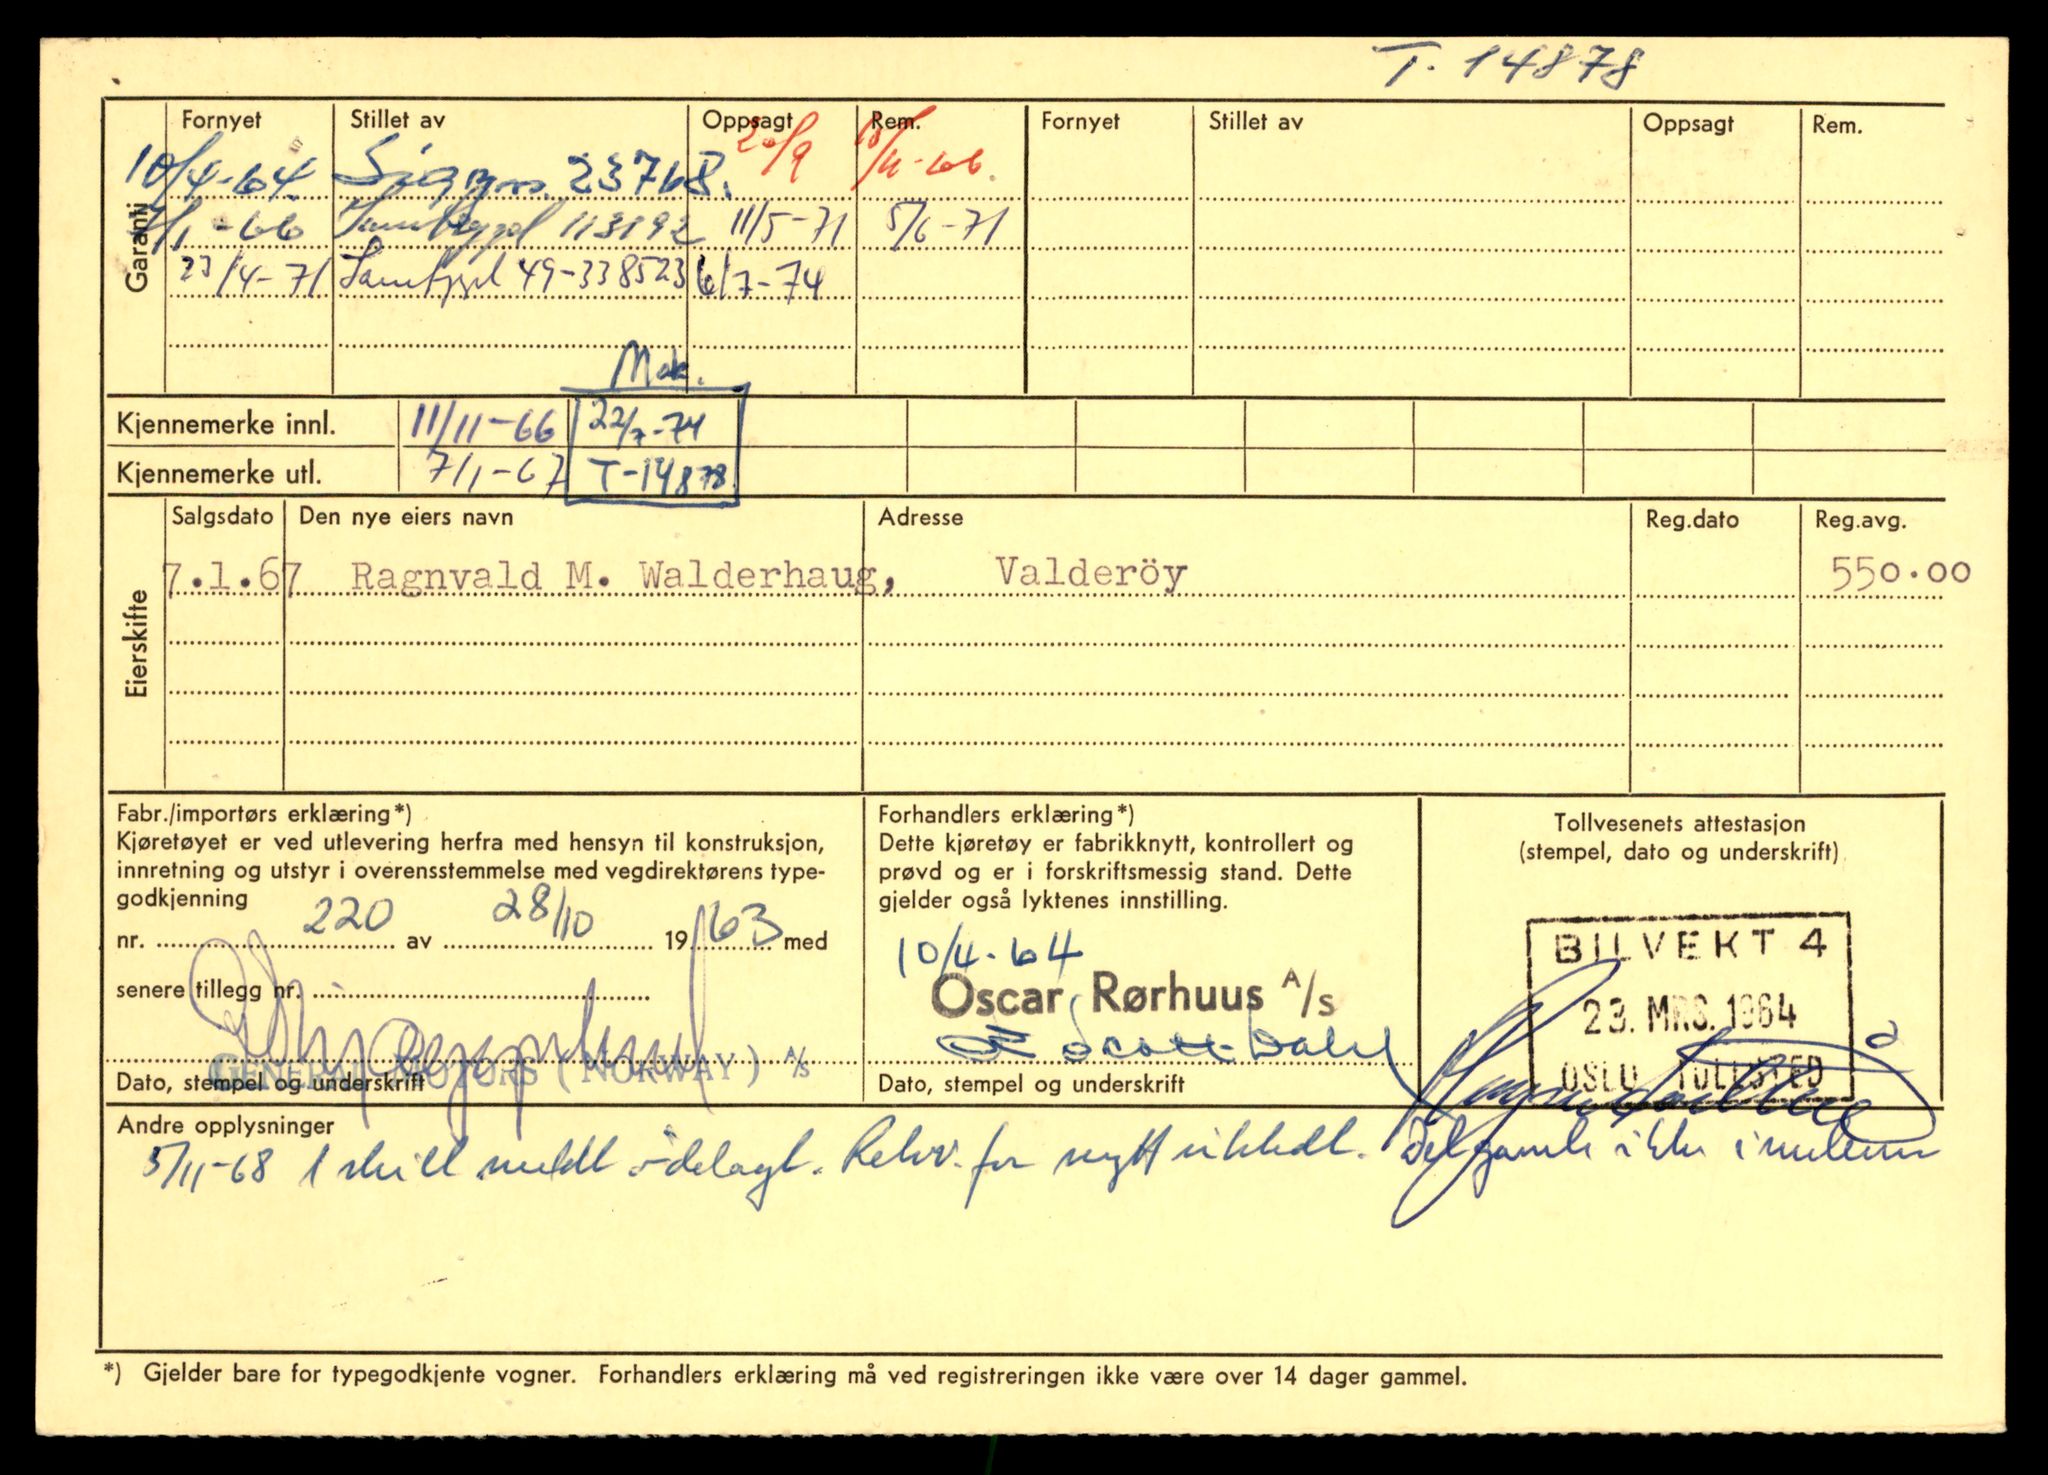 T. 14878
Garanti
Fornyet Stillet av Oppsagt Rem. Fornyet Stillet av Oppsagt Rem.
10/4-64. 23768. 20/9 10/11-66.
7/1-66 113192 11/5-71 5/6-71
23/4-71 Samtrygd 49-338523 6/7-74
Mak.
Kjennemerke innl. 11/11-66 22/7-74
Kjennemerke utl. 7/1-67 T-14878
Eierskifte
Salgsdato Den nye eiers navn Adresse Reg.dato Reg.avg.
7.1.67 Ragnvald M. Walderhaug, Valderöy 550.00
Fabr./importørs erklæring*)
Kjøretøyet er ved utlevering herfra med hensyn til konstruksjon,
innretning og utstyr i overensstemmelse med vegdirektørens type-
godkjenning
nr. 220 av 28/10 1963 med
senere tillegg nr.
GENERAL MOTORS (NORWAY) A/S
Dato, stempel og underskrift
Forhandlers erklæring*)
Dette kjøretøy er fabrikknytt, kontrollert og
prøvd og er i forskriftsmessig stand. Dette
gjelder også lyktenes innstilling.
10/4-64
Oscar Rørhuus A/s
Scott-Dahl
Dato, stempel og underskrift
Tollvesenets attestasjon
(stempel, dato og underskrift)
BILVEKT 4
23. MRS. 1964
OSLO TOLLSTED
Andre opplysninger
5/11-68 1 skilt meldt ødelagt. Rekv. for nytt utstedt. Det gamle ikke innlevert
*) Gjelder bare for typegodkjente vogner. Forhandlers erklæring må ved registreringen ikke være over 14 dager gammel.